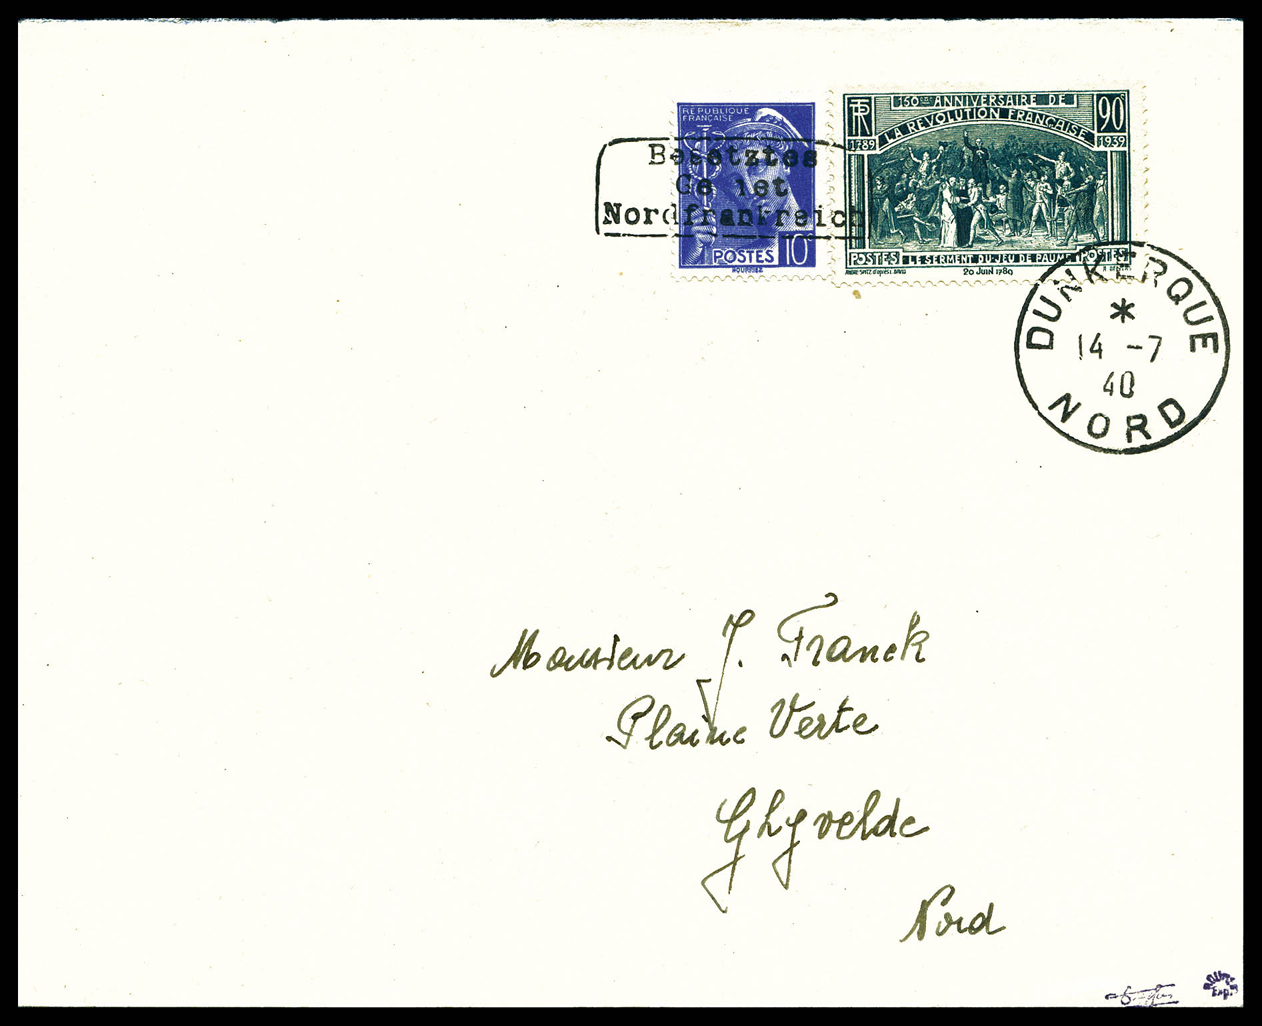 RÉPUBLIQUE
FRANÇAISE
POSTES 10c
Besetztes
Ge iet
Nordfrankreich
RF 150 ANNIVERSAIRE DE 90c
LA RÉVOLUTION FRANÇAISE
1789 1939
POSTES LE SERMENT DU JEU DE PAUME POSTES
20 JUIN 1789
DUNKERQUE
*
14 -7
40
NORD
Monsieur J. Franck
Plaine Verte
Ghyvelde
Nord